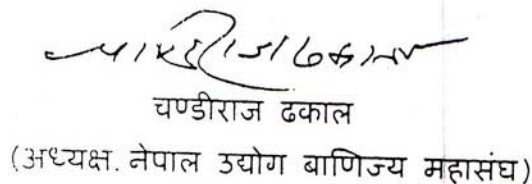 चण्डीराज ढकाल
(अध्यक्ष. नेपाल उद्योग बाणिज्य महासंघ)